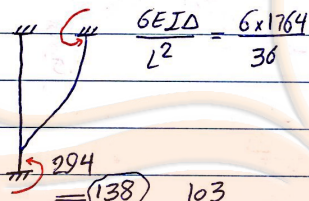 6EIΔ/L² = 6x1764/36
294
= 138 103